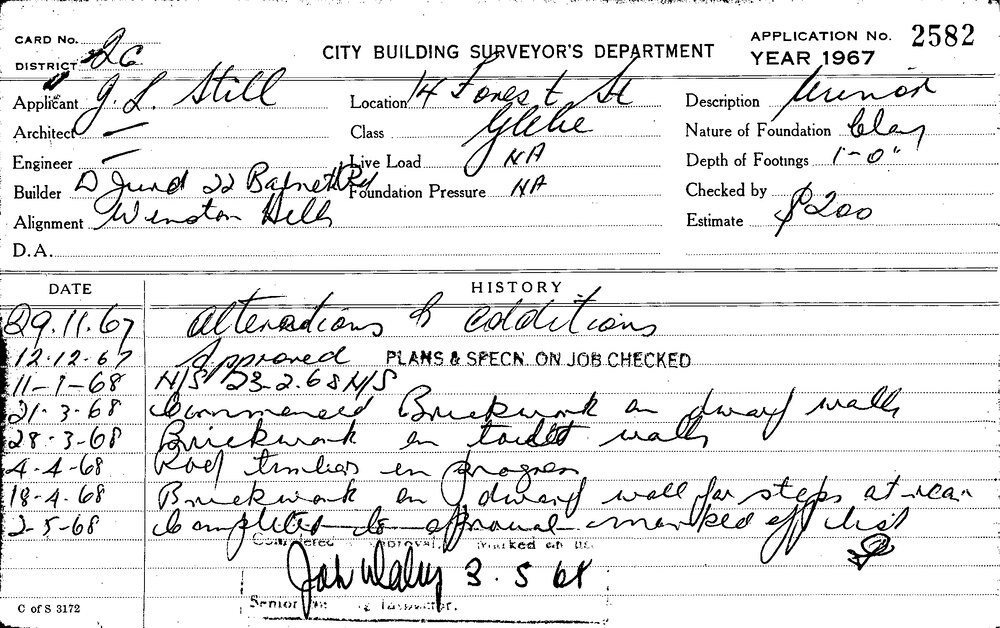 CARD No.
DISTRICT 26
CITY BUILDING SURVEYOR'S DEPARTMENT
APPLICATION No. 2582
YEAR 1967
Applicant J. L. Still
Location 14 Forest St
Description Minor
Architect —
Class Glebe
Nature of Foundation Clay
Engineer —
Live Load NA
Depth of Footings 1'-0"
Builder D Jurd 22 Barnett Rd
Foundation Pressure NA
Checked by
Alignment Winston Hills
Estimate $200
D.A.
DATE HISTORY
29.11.67 Alterations & additions
12.12.67 Approved PLANS & SPECN. ON JOB CHECKED
11-1-68 N/S 23-2.68 N/S
21-3-68 Commenced Brickwork on dwarf walls
28-3-68 Brickwork on toilet walls
4-4-68 Roof timbers in progress
18-4.68 Brickwork on dwarf wall for steps at rear
2-5-68 Completed to approval marked off list
Completed approval. Marked on
3.5 68
Senior Inspector.
C of S 3172